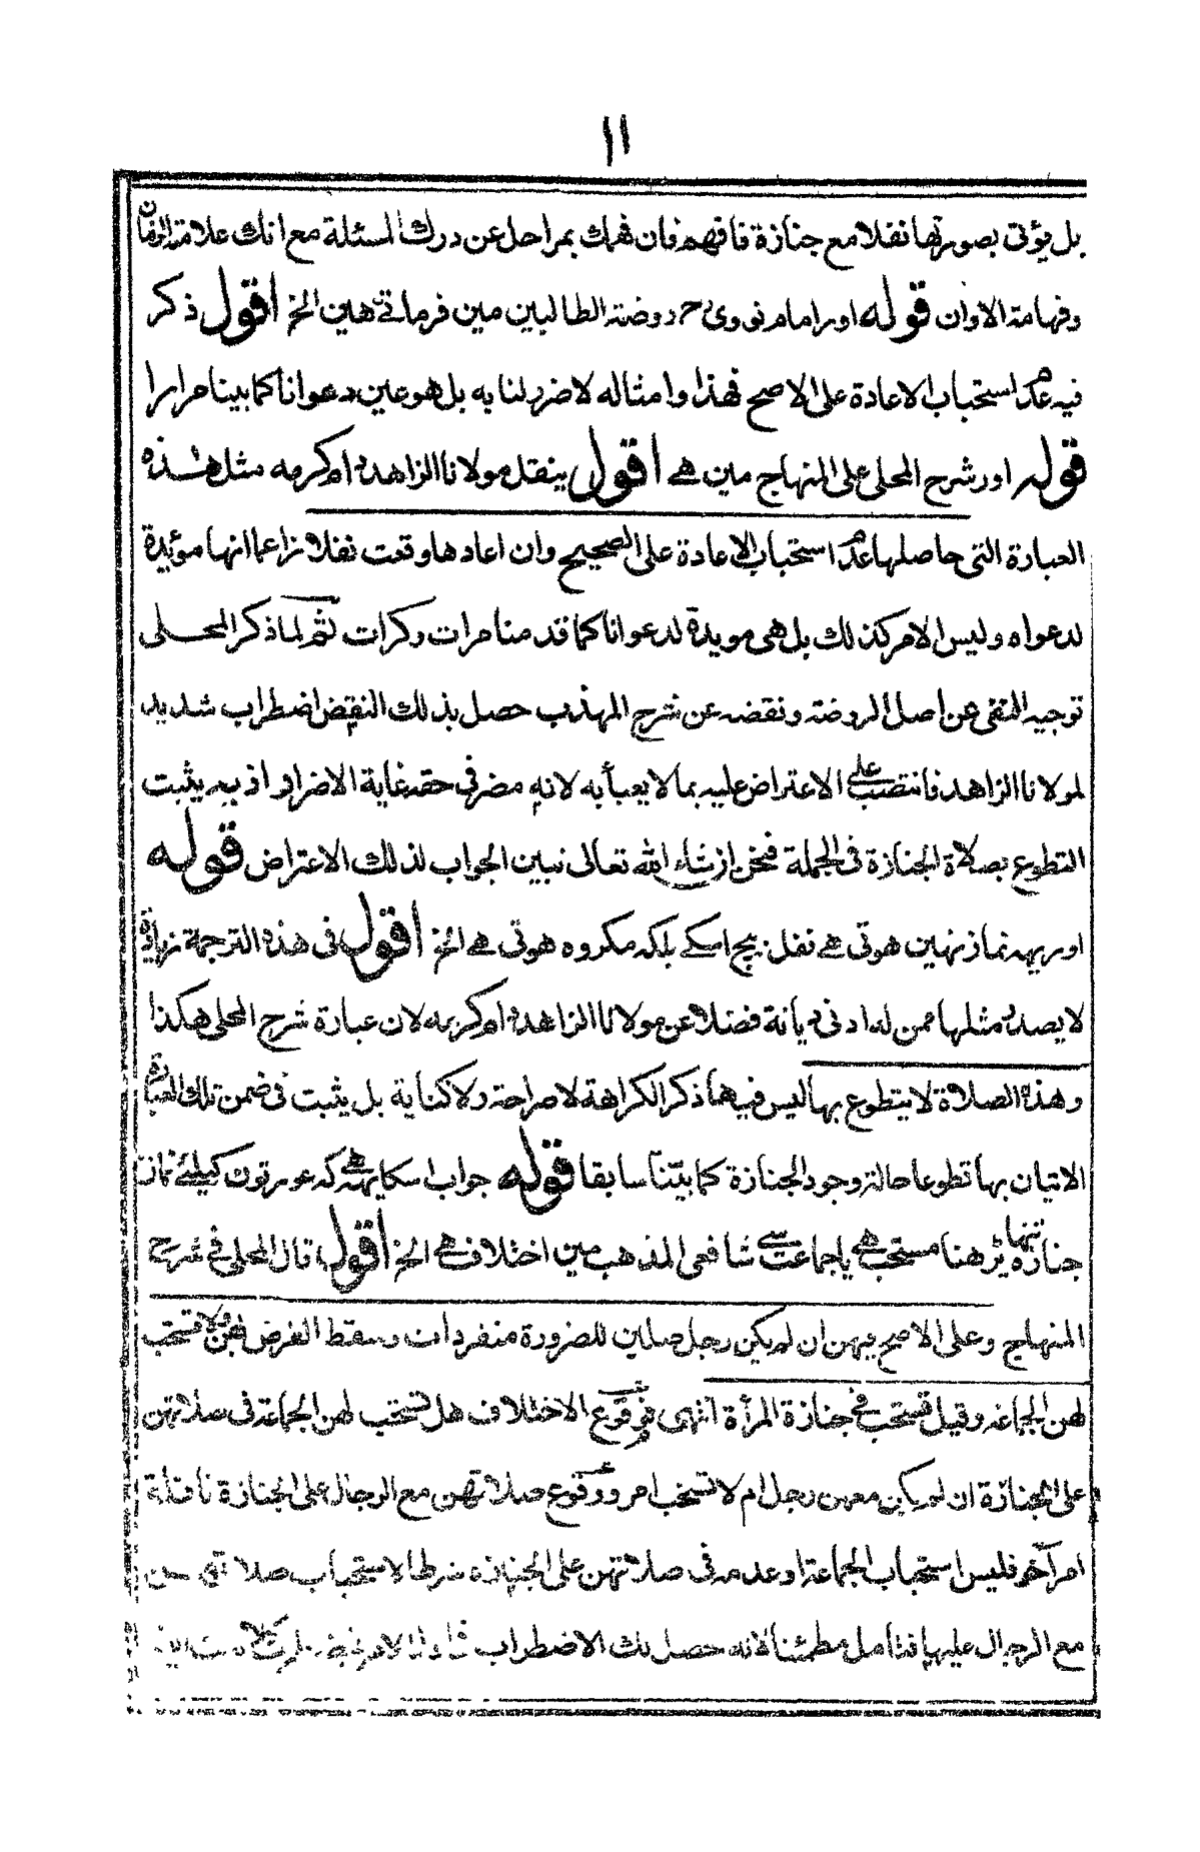 ۱۱
بل يؤتى بصورتها نفلا مع جنازة فافهم فان فهمك بمراحل عن درك المسئلة مع انك علامة الزمان
وفهامة الاوان قوله اور امام نووی رح روضة الطالبين مین فرماتے ھین الخ اقول ذكر
فيه عدم استحباب الاعادة على الاصح فهذا وامثاله لا ضرر لنا به بل هو عين دعوانا كما بينا مرارا
قوله اور شرح المحلى على المنهاج مین ھے اقول ينقل مولانا الزاهد دام كرمه مثل هذه
العبارة التى حاصلها عدم استحباب الاعادة على الصحيح وان اعادها وقعت نفلا زاعما انها مؤيدة
لدعواه وليس الامر كذلك بل هى مويدة لدعوانا كما قد منا مرات وكرات ثم لما ذكر المحلى
توجيه النفى عن اصل الروضة ونقضه عن شرح المهذب حصل بذلك النقض اضطراب شديد
لمولانا الزاهد فانتصب على الاعتراض عليه بما لا يعبأ به لانه مضر فى حقه غاية الاضرار اذ به يثبت
التطوع بصلاة الجنازة فى الجملة فنحن ان شاء الله تعالى نبين الجواب لذلك الاعتراض قوله
اور یہہ نماز نہین ھوتی ھے نفل بیچ اسکے بلکہ مکروہ ھوتی ھے الخ اقول فى هذه الترجمة زيادة
لا يصدر مثلها ممن له ادنى ديانة فضلا عن مولانا الزاهد دام كرمه لان عبارة شرح المحلى هكذا
وهذه الصلاة لا يتطوع بها ليس فيها ذكر الكراهة لا صراحة ولا كناية بل يثبت فى ضمن تلك العبارة
الاتيان بها تطوعا حالة وجود الجنازة كما بيّنا سابقا قوله جواب اسکا یہہ ھے کہ عورتون کیلئے نماز
جنازہ تنہا پڑھنا مستحب ھے یا جماعت سے شافعی المذهب مین اختلاف ھے الخ اقول قال المحلى فى شرح
المنهاج وعلى الاصح فيهن ان لم يكن رجل صلين للضرورة منفردات وسقط الفرض بهن ولا تستحب
لهن الجماعة وقيل تستحب فى جنازة المرأة انتهى فوقوع الاختلاف هل تستحب لهن الجماعة فى صلاتهن
على الجنازة ان لم يكن معهن رجل ام لا تستحب امر ووقوع صلاتهن مع الرجال على الجنازة نافلة
امر آخر فليس استحباب الجماعة او عدمه فى صلاتهن على الجنازة شرطا لاستحباب صلاتهن
مع الرجال عليها فتأمل مطمئنا لانه حصل لك الاضطراب